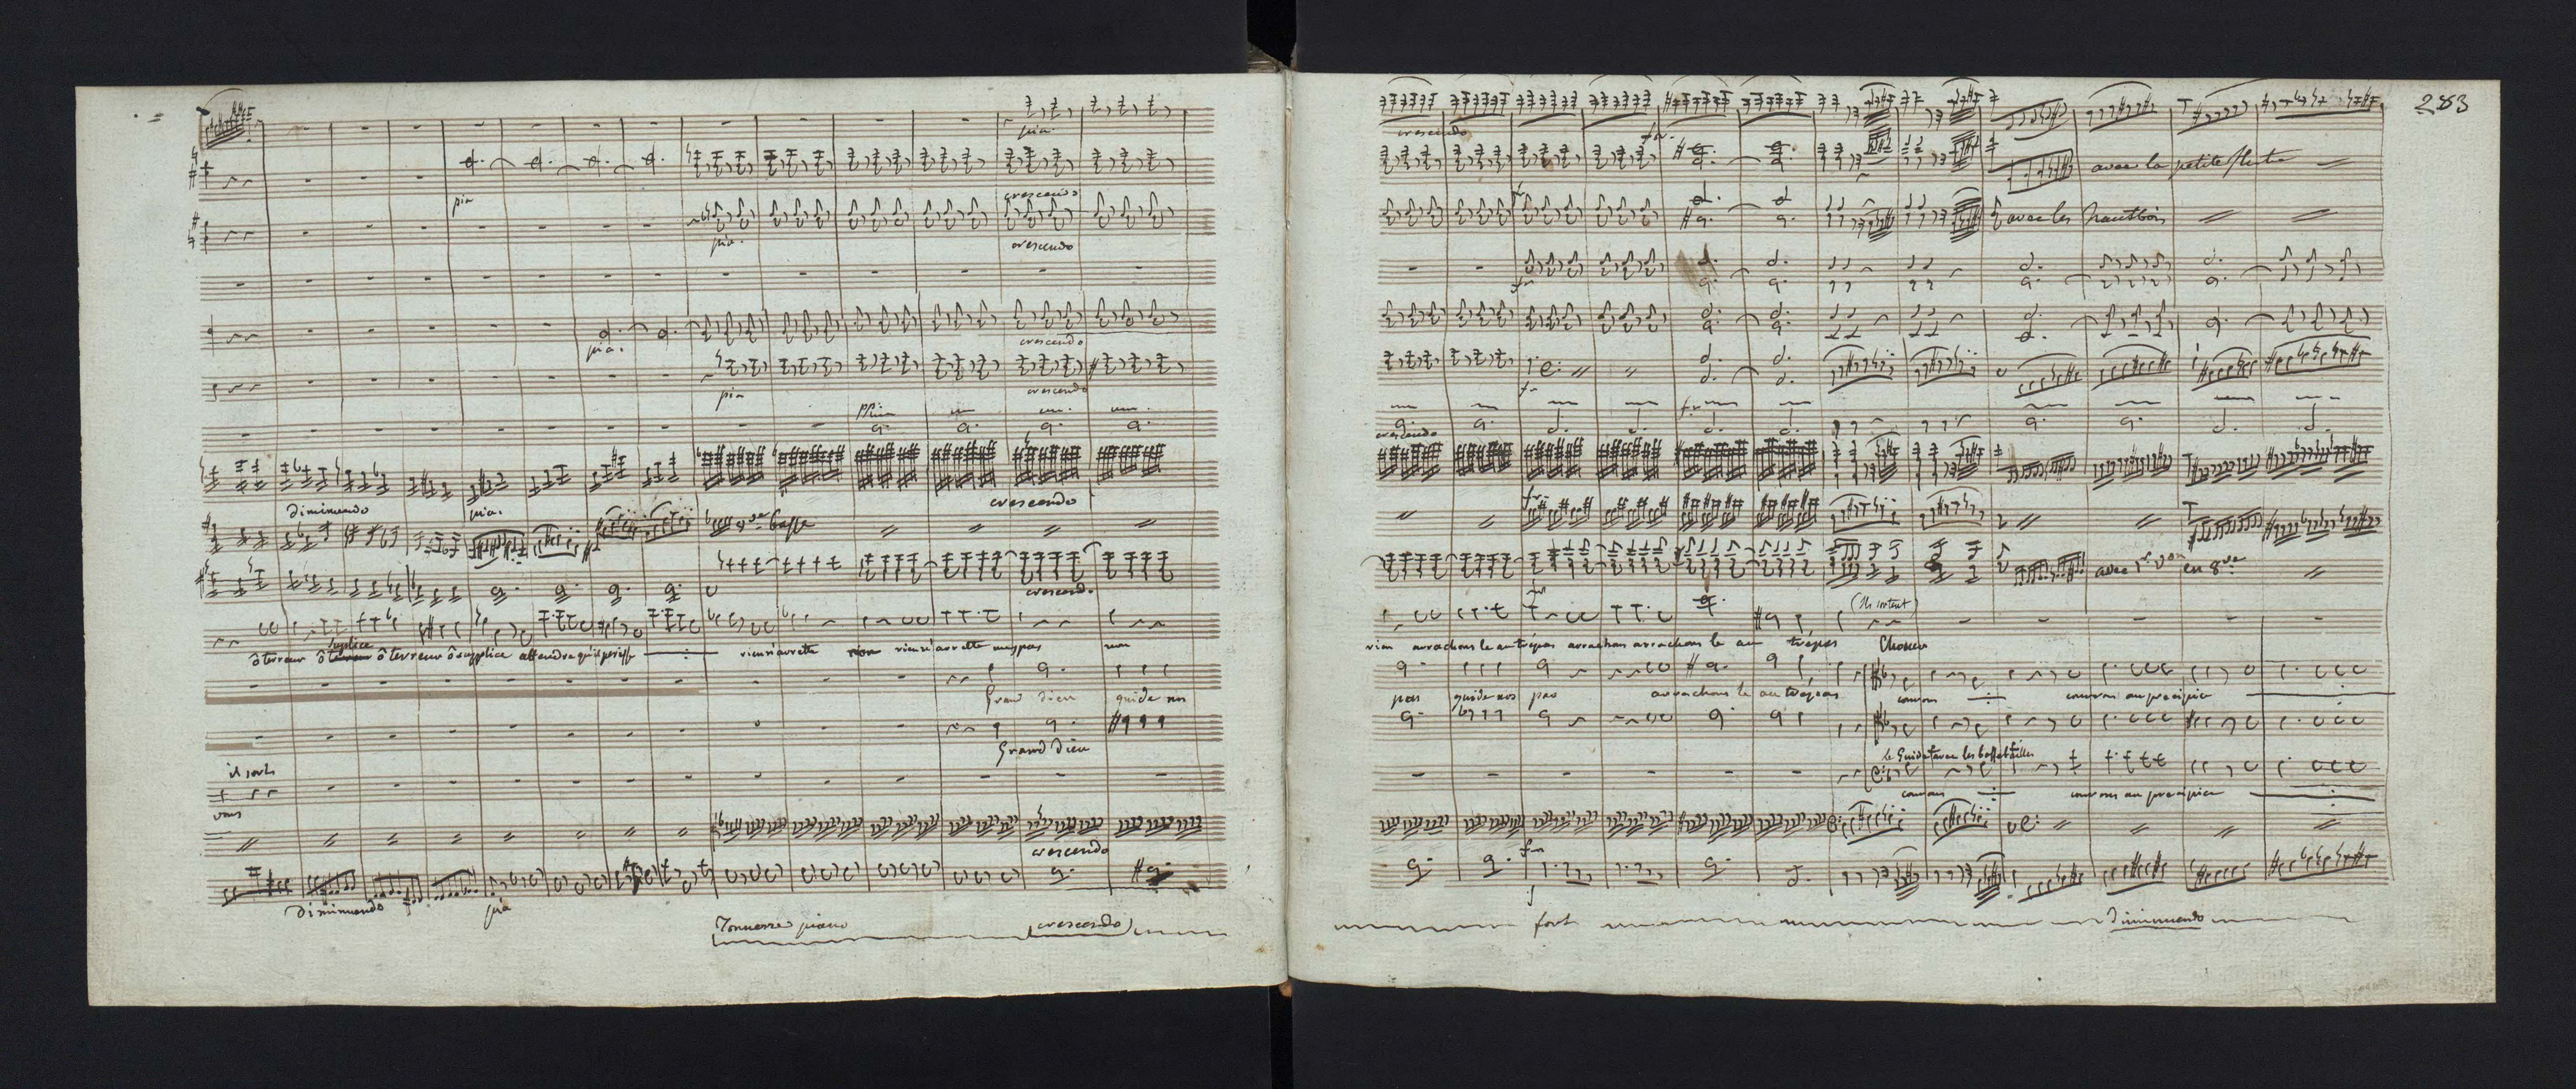 pia
crescendo
pia
crescendo
pia.
crescendo
pia.
crescendo
pia
crescendo
ppia
Diminuendo
pia.
crescendo
8ve basse
crescend.
ô terreur ô supplice ô terreur ô supplice attendre qu'il perisse
rien n'arrette rien n'arrette mes pas non
Grand dieu guide nos
Grand Dieu
il sort
vous
crescendo
Diminuendo
pia
Tonnerre piano
crescendo
283
crescendo
for
avec la petite flute
avec les hautbois
crescendo
avec 1er von en 8ve
(ils sortent)
rien arrachons le au trépas arrachons arrachons le au trépas
Choeur
pas guide nos pas arrachons le au trépas
courons
courons au precipice
le Guide avec les bassetailles
courons
courons au precipice
fort
Diminuendo